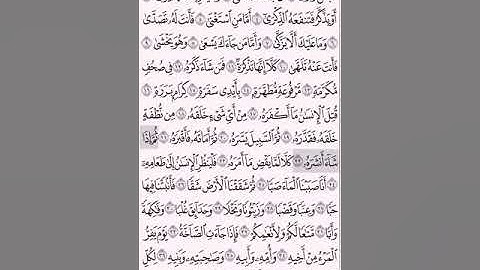 أَوْ يَذَّكَّرُ فَتَنفَعَهُ الذِّكْرَىٰ ۝٤ أَمَّا مَنِ اسْتَغْنَىٰ ۝٥ فَأَنتَ لَهُ تَصَدَّىٰ
۝٦ وَمَا عَلَيْكَ أَلَّا يَزَّكَّىٰ ۝٧ وَأَمَّا مَن جَاءَكَ يَسْعَىٰ ۝٨ وَهُوَ يَخْشَىٰ ۝٩
فَأَنتَ عَنْهُ تَلَهَّىٰ ۝١٠ كَلَّا إِنَّهَا تَذْكِرَةٌ ۝١١ فَمَن شَاءَ ذَكَرَهُ ۝١٢ فِي صُحُفٍ
مُّكَرَّمَةٍ ۝١٣ مَّرْفُوعَةٍ مُّطَهَّرَةٍ ۝١٤ بِأَيْدِي سَفَرَةٍ ۝١٥ كِرَامٍ بَرَرَةٍ ۝١٦
قُتِلَ الْإِنسَانُ مَا أَكْفَرَهُ ۝١٧ مِنْ أَيِّ شَيْءٍ خَلَقَهُ ۝١٨ مِن نُّطْفَةٍ
خَلَقَهُ فَقَدَّرَهُ ۝١٩ ثُمَّ السَّبِيلَ يَسَّرَهُ ۝٢٠ ثُمَّ أَمَاتَهُ فَأَقْبَرَهُ ۝٢١ ثُمَّ إِذَا
شَاءَ أَنشَرَهُ ۝٢٢ كَلَّا لَمَّا يَقْضِ مَا أَمَرَهُ ۝٢٣ فَلْيَنظُرِ الْإِنسَانُ إِلَىٰ طَعَامِهِ
۝٢٤ أَنَّا صَبَبْنَا الْمَاءَ صَبًّا ۝٢٥ ثُمَّ شَقَقْنَا الْأَرْضَ شَقًّا ۝٢٦ فَأَنبَتْنَا فِيهَا
حَبًّا ۝٢٧ وَعِنَبًا وَقَضْبًا ۝٢٨ وَزَيْتُونًا وَنَخْلًا ۝٢٩ وَحَدَائِقَ غُلْبًا ۝٣٠ وَفَاكِهَةً
وَأَبًّا ۝٣١ مَّتَاعًا لَّكُمْ وَلِأَنْعَامِكُمْ ۝٣٢ فَإِذَا جَاءَتِ الصَّاخَّةُ ۝٣٣ يَوْمَ يَفِرُّ
الْمَرْءُ مِنْ أَخِيهِ ۝٣٤ وَأُمِّهِ وَأَبِيهِ ۝٣٥ وَصَاحِبَتِهِ وَبَنِيهِ ۝٣٦ لِكُلِّ